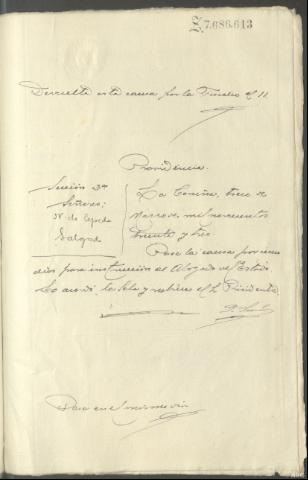 Z 7.686.613
Devuelta esta causa por la Fiscalia el 11
Providencia.
Sección 3ª
Señores:
de Cepeda
Salgado
La Coruña, trece de
Marzo de mil novecientos
treinta y tres.
Pase la causa por cinco
dias para instrucción al Abogado del Estado.
Lo acordó la Sala y rubrica el S. Presidente.
Pasa en el mismo dia